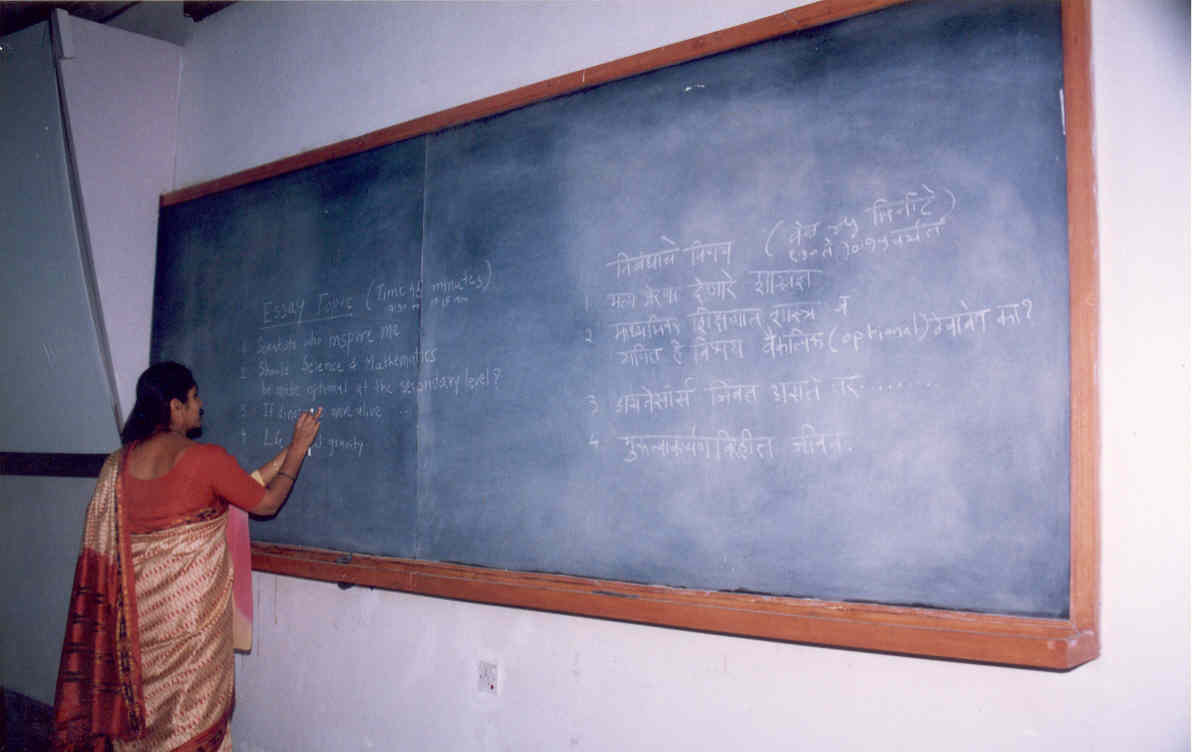 Essay Topics (Time 45 minutes)
1 Scientists who inspire me
2 Should Science & Mathematics
be made optional at the secondary level?
3 If dinosaurs were alive ...
4 gravity
निबंधाचे विषय (वेळ ४५ मिनीटे)
९.३० ते १०.१५ पर्यंत
1 मला प्रेरणा देणारे शास्त्रज्ञ
2 माध्यमिक शिक्षणात शास्त्र व
गणित हे विषय वैकल्पिक (optional) ठेवावेत का?
3 डायनोसॉर्स जिवंत असते तर........
4 गुरुत्वाकर्षण विहीत जीवन.